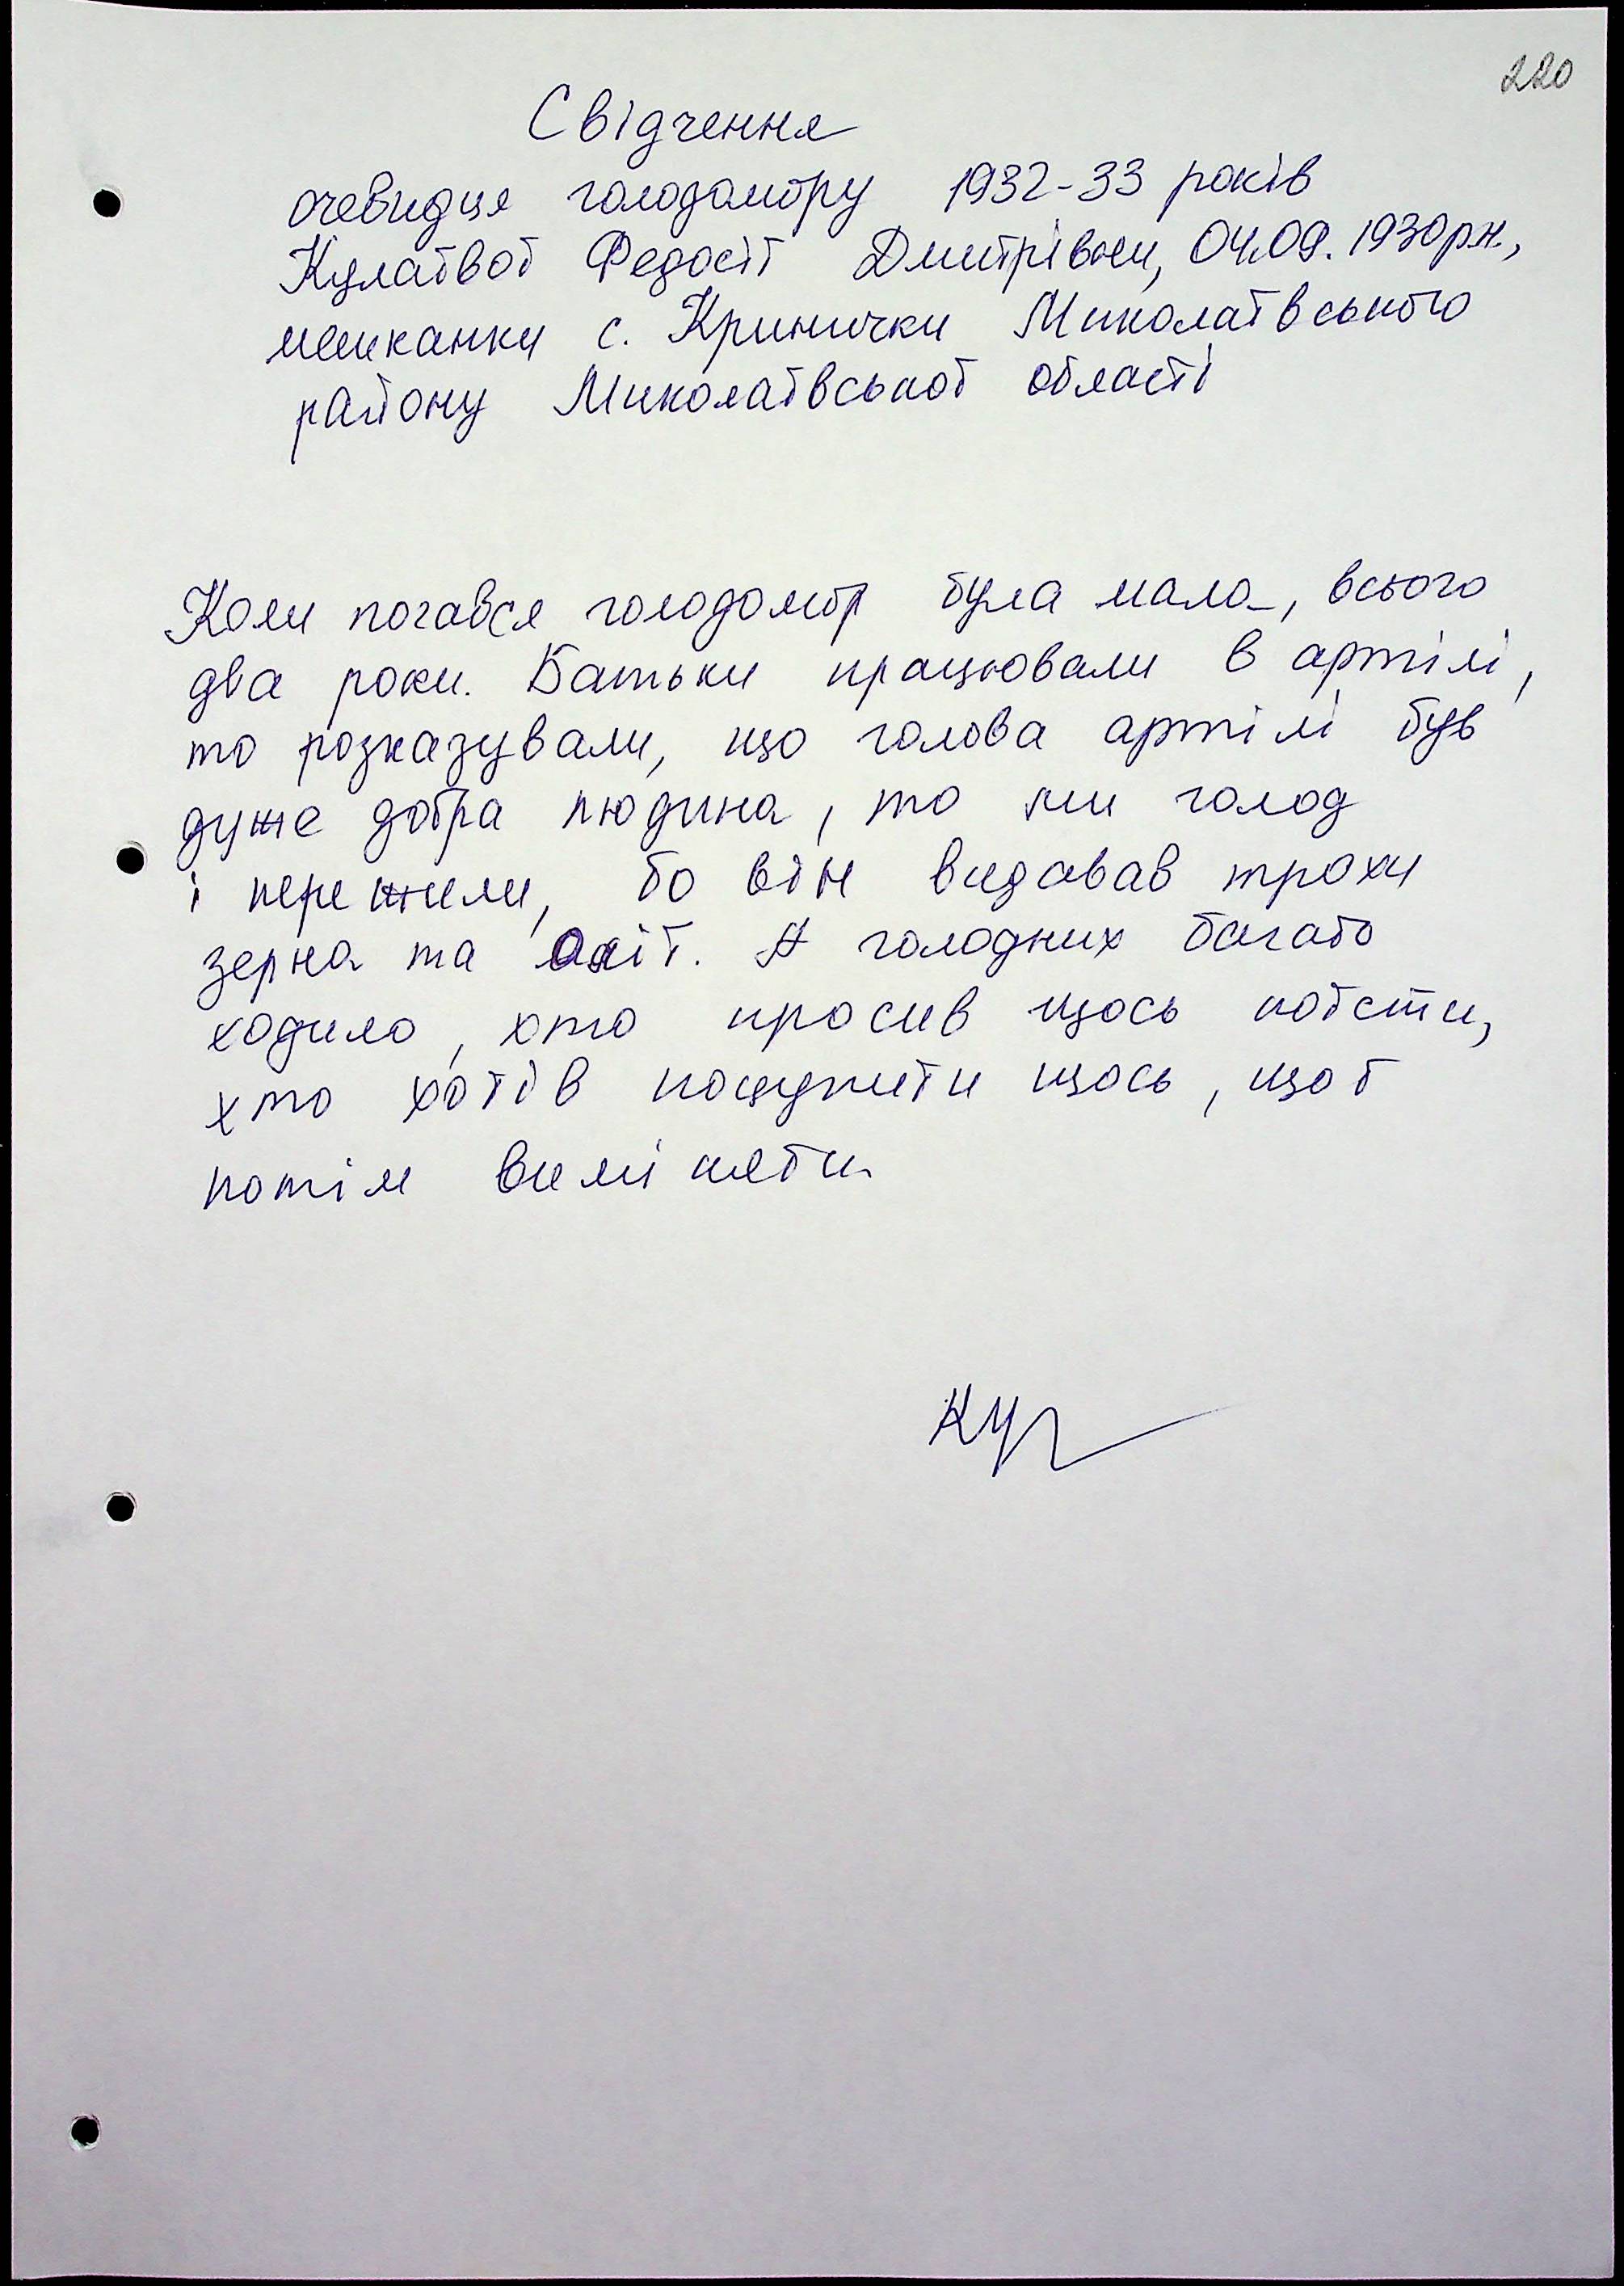 220
Свідчення
очевидця голодомору 1932-33 років
Кулаївої Федосії Дмитрівни, 04.09.1930р.н.,
мешканки с. Кринички Миколаївського
району Миколаївської області
Коли почався голодомор була мала, всього
два роки. Батьки працювали в артілі,
то розказували, що голова артілі був
дуже добра людина, то ми голод
і пережили, бо він видавав трохи
зерна та олії. А голодних багато
ходило, хто просив щось поїсти,
хто хотів поцупити щось, щоб
потім виміняти